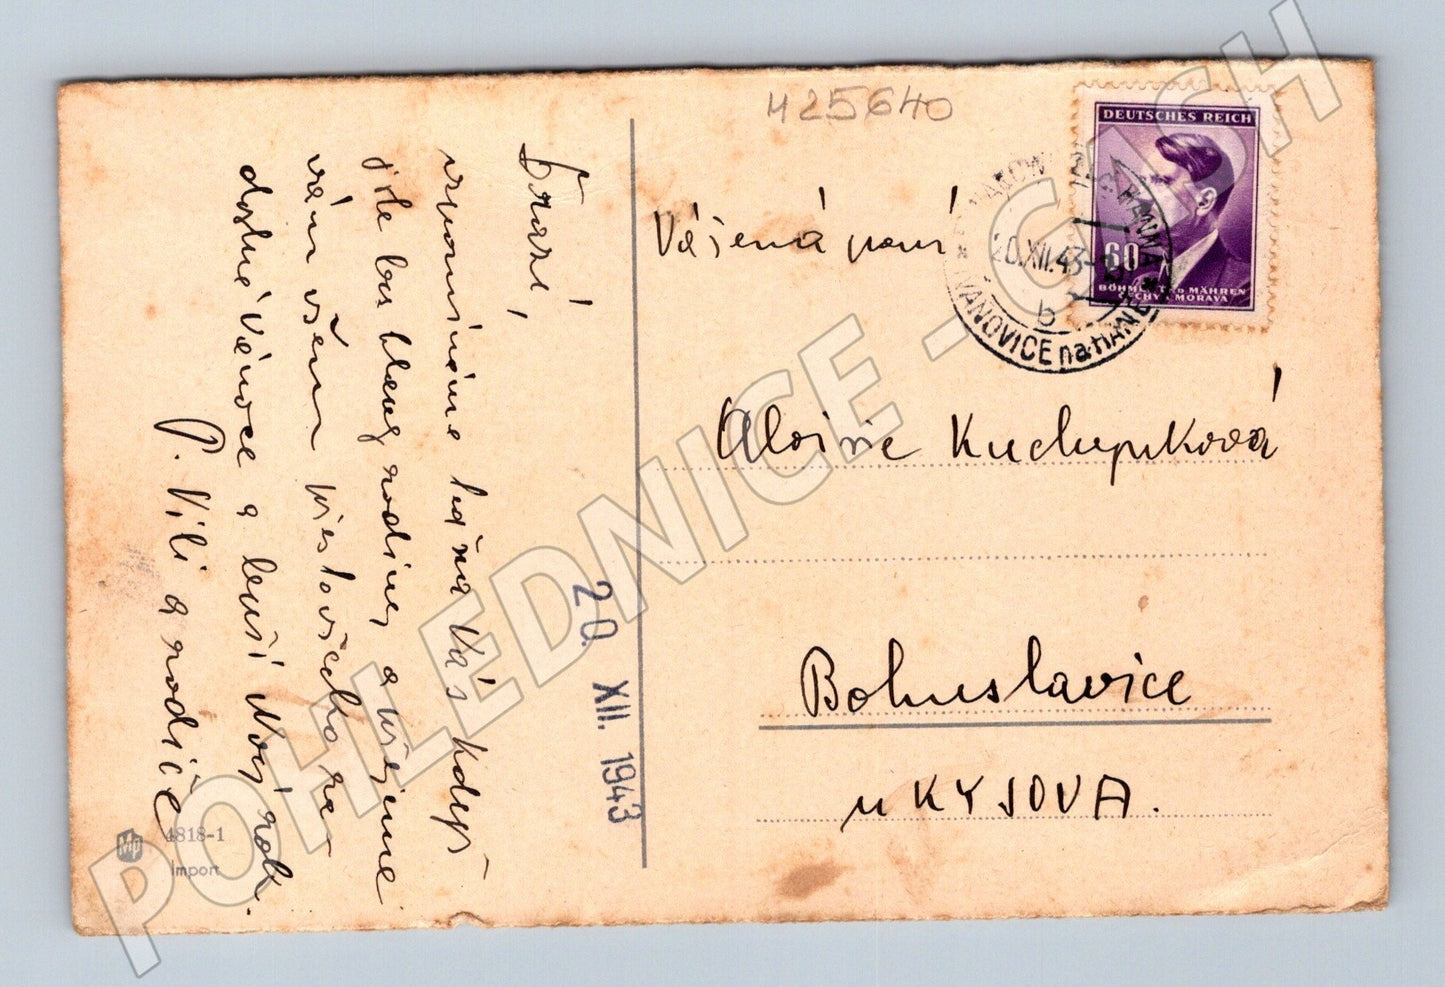 425640
DEUTSCHES REICH
60
BÖHMEN und MÄHREN
ČECHY a MORAVA
20.XII.43
b
IVANOVICE na HANÉ
Drazí
vzpomínáme leč na Vás když
jste bez hlavy rodiny a přejeme
vám všem
došné Vánoce a lepší Nový rok.
P. Vili a rodiče
20. XII. 1943
Vážená paní
Aloisie
Bohuslavice
u KYJOVA.
Mp
4818-1
Import
POHLEDNICE - CASH